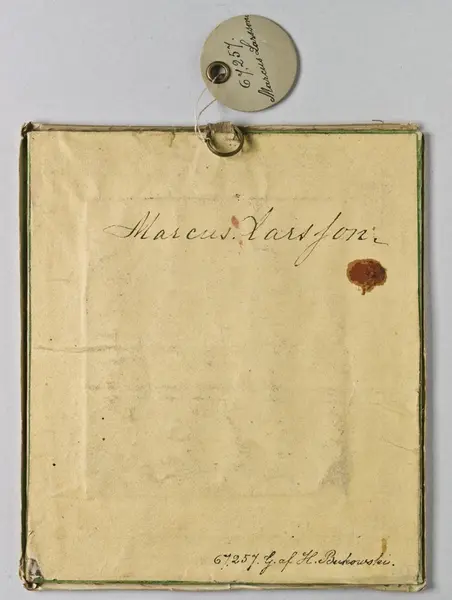 67.257.
Marcus Larsson
Marcus. Larsson.
67.257. G. af H. Bukowski.